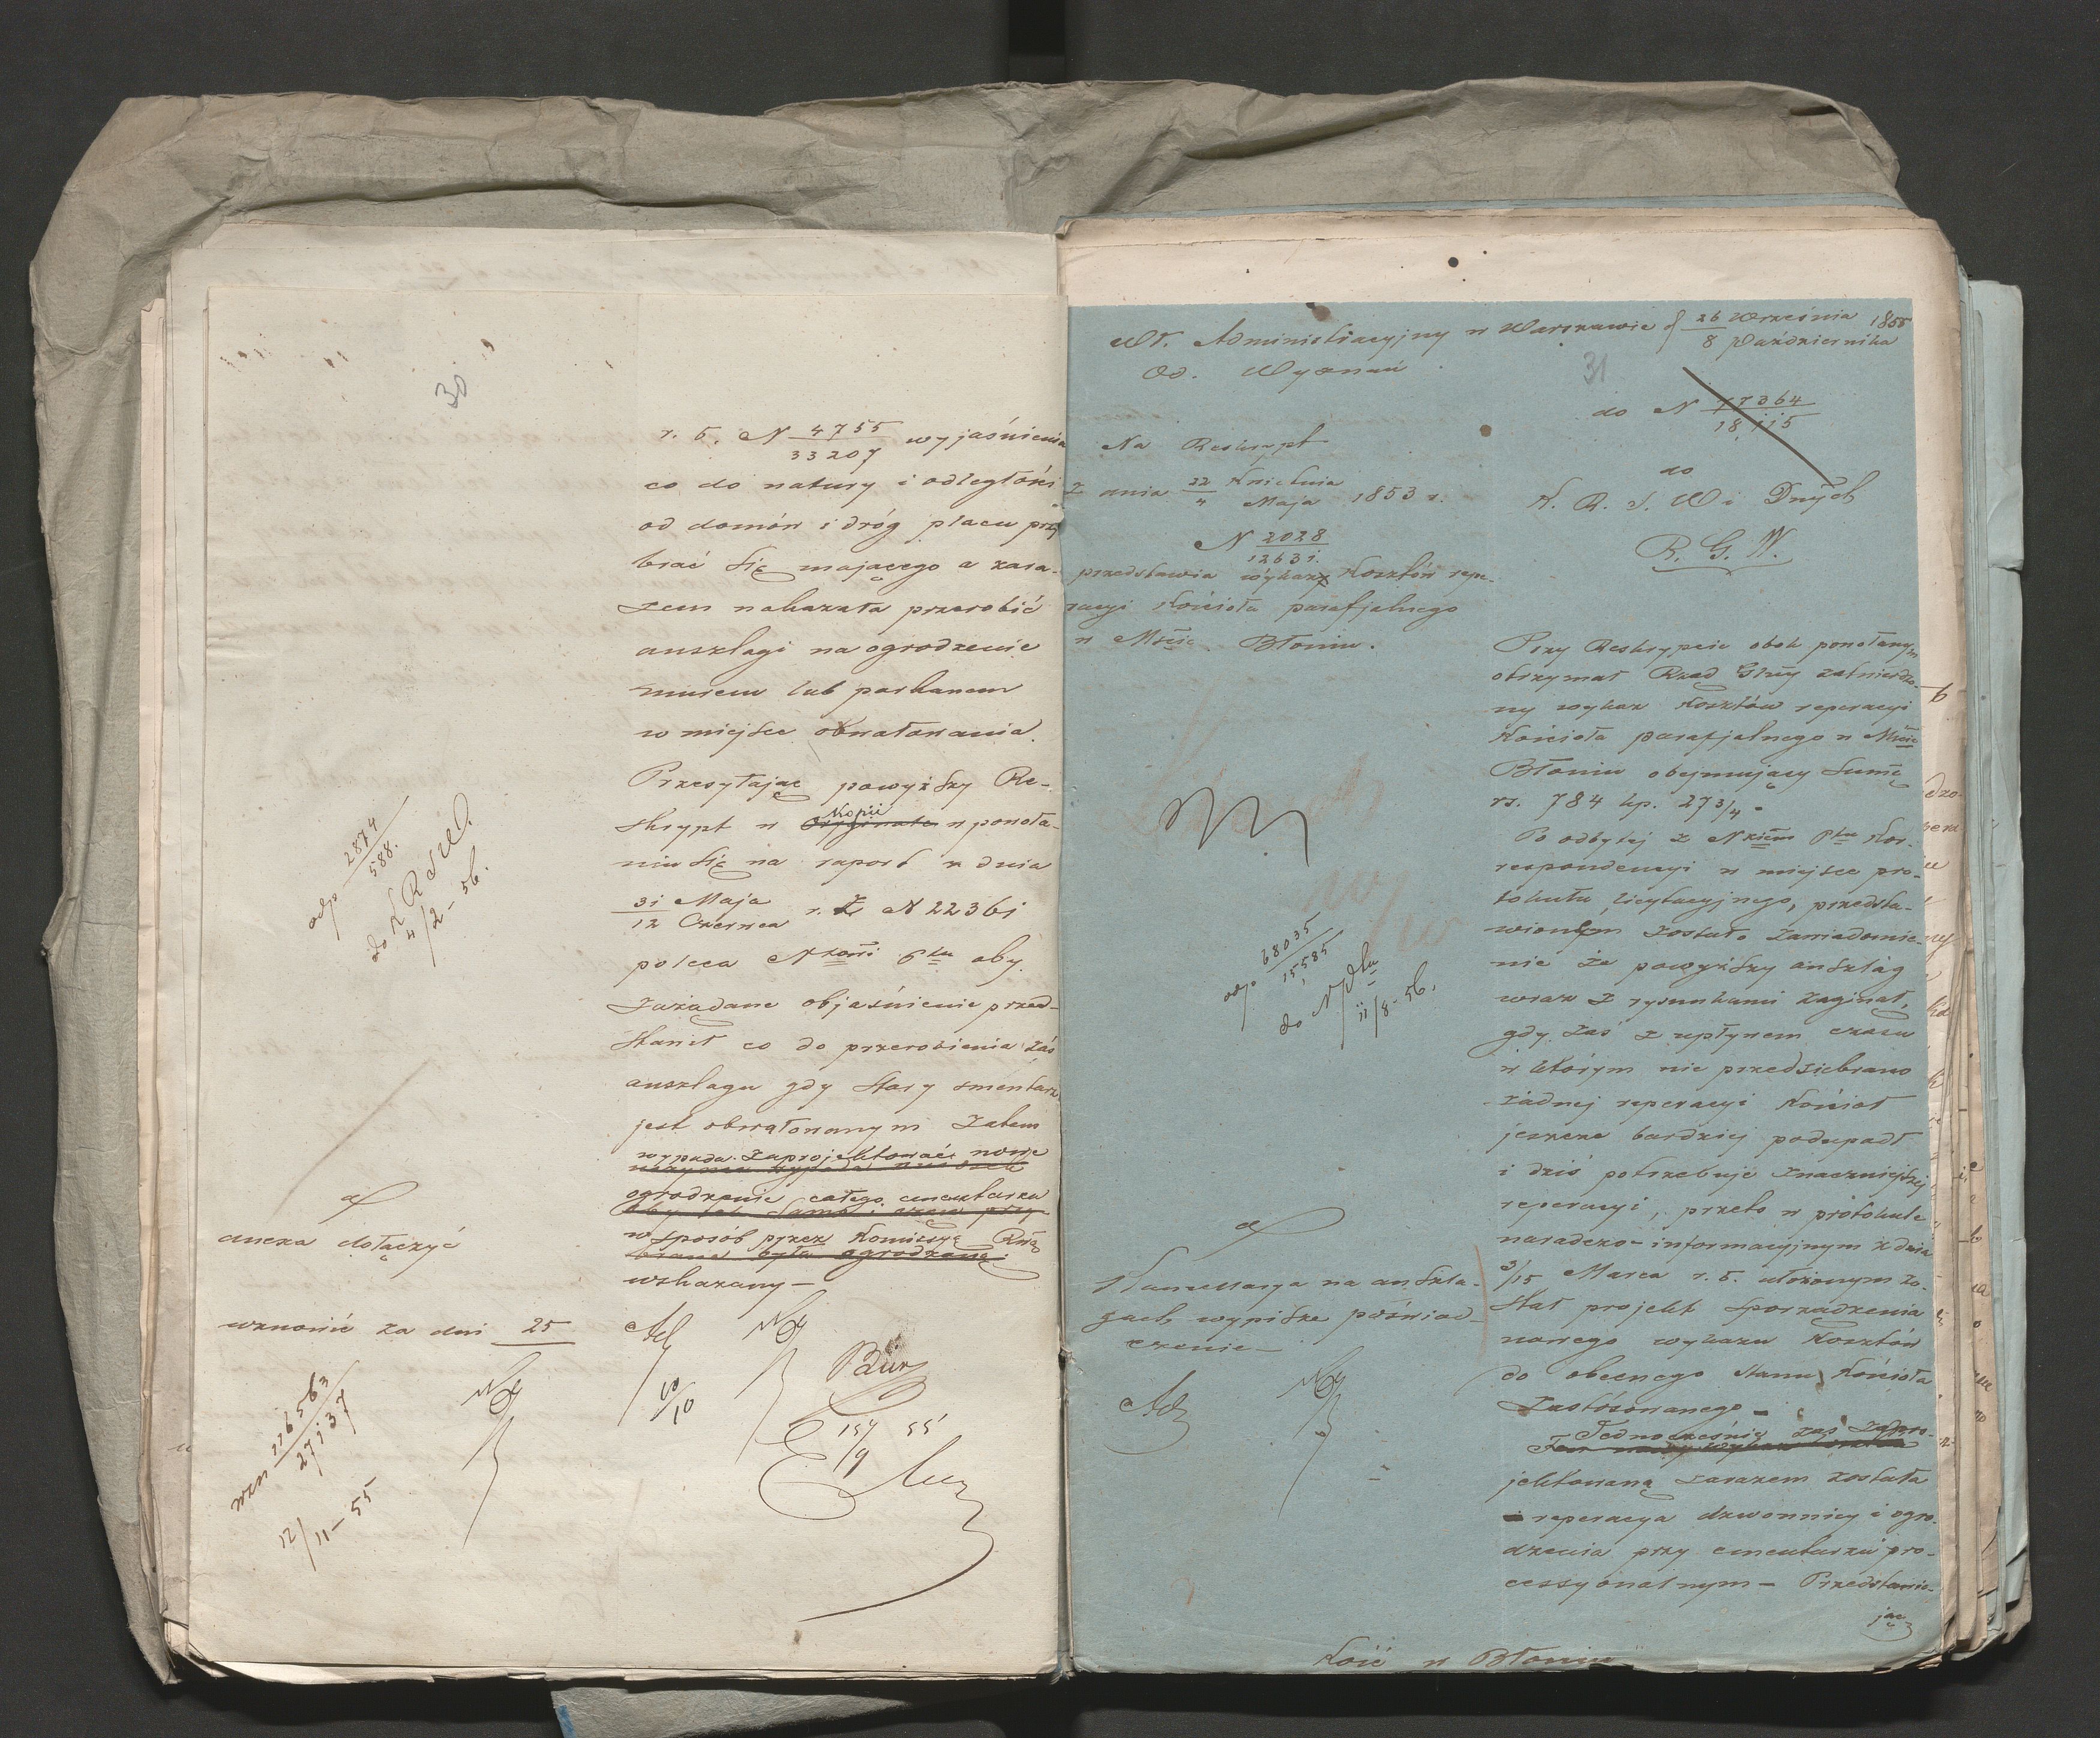 30
r. b. N 4755/33207 wyjaśnienia
co do natury i odległości
od domów i dróg placu przy
brać się mającego a zara-
zem nakazała przerobić
anszlagi na ogrodzenie
murem lub parkanem
w miejsce obwałowania.
Przesyłając powyższy Re-
Kopii
skrypt w Oryginale w powoła-
niu się na raport z dnia
31 Maja/12 Czerwca r. z N 22361
poleca Nkowi Ptu aby
zażądane objaśnienie przed-
stawił co do przerobienia zaś
anszlagu gdy stary smentarz
jest obwałowanym zatem
wypada zaprojektować nowe
ogrodzenie całego cmentarza
w sposób przez Komissyę Rzą
brana była ogrodzoną.
wskazany –
odp 2874/588.
do K R S W D.
4/2 – 56.
anexa dołączyć
wznowić za dni 25
wzn 116563/27137
12/11 – 55
10/10
15/9 55
Wł. Administracyjny w Warszawie d 26 Września/8 Października 1855
Od. Wyznań
31
do N 77364/18,115
Na Reskrypt
z dnia 22 Kwietnia/4 Maja 1853 r.
N 2028/12631.
przedstawia wykaz Kosztów repe-
racyi Kościoła parafjalnego
w Mście Błoniu.
do
K. R. S. W i Dnych
R. G. W.
Przy Reskrypcie obok powołanym
otrzymał Rząd Gbny zatwierdzo-
ny wykaz Kosztów reperacyi
Kościoła parafjalnego w Mście
Błoniu obejmujący summę
rs. 784 kp. 27 3/4.
Po odbytej z Nkiem Ptu Kor-
respondencyi w miejsce pro-
tokułu licytacyjnego, przedsta-
wionem zostało zawiadomie-
nie że powyższy anszlag
wraz z rysunkami zaginął,
gdy zaś z upływem czasu
w którym nie przedsiebrano
żadnej reperacyi Kościoł
jeszcze bardziej podupadł
i dziś potrzebuje znaczniejszej
reperacyi, przeto w protokule
naradczo-informacyjnym z dnia
3/15 Marca r. b. ułożonym zo-
stał projekt sporządzenia
nowego wykazu Kosztów
do obecnego stanu Kościoła
zastósowanego –
Jednocześnie zaś zapro-
jektowaną zarazem została
i reperacya dzwonnicy i ogro-
dzenia przy cmentarzu pro-
cessyonalnym – Przedstawia-
jąc
odp 68035/15,585
do N Ptu
11/8 – 56.
Kancellarya na anszla-
gach wypisze poświad-
czenie –
Kość w Błoniu